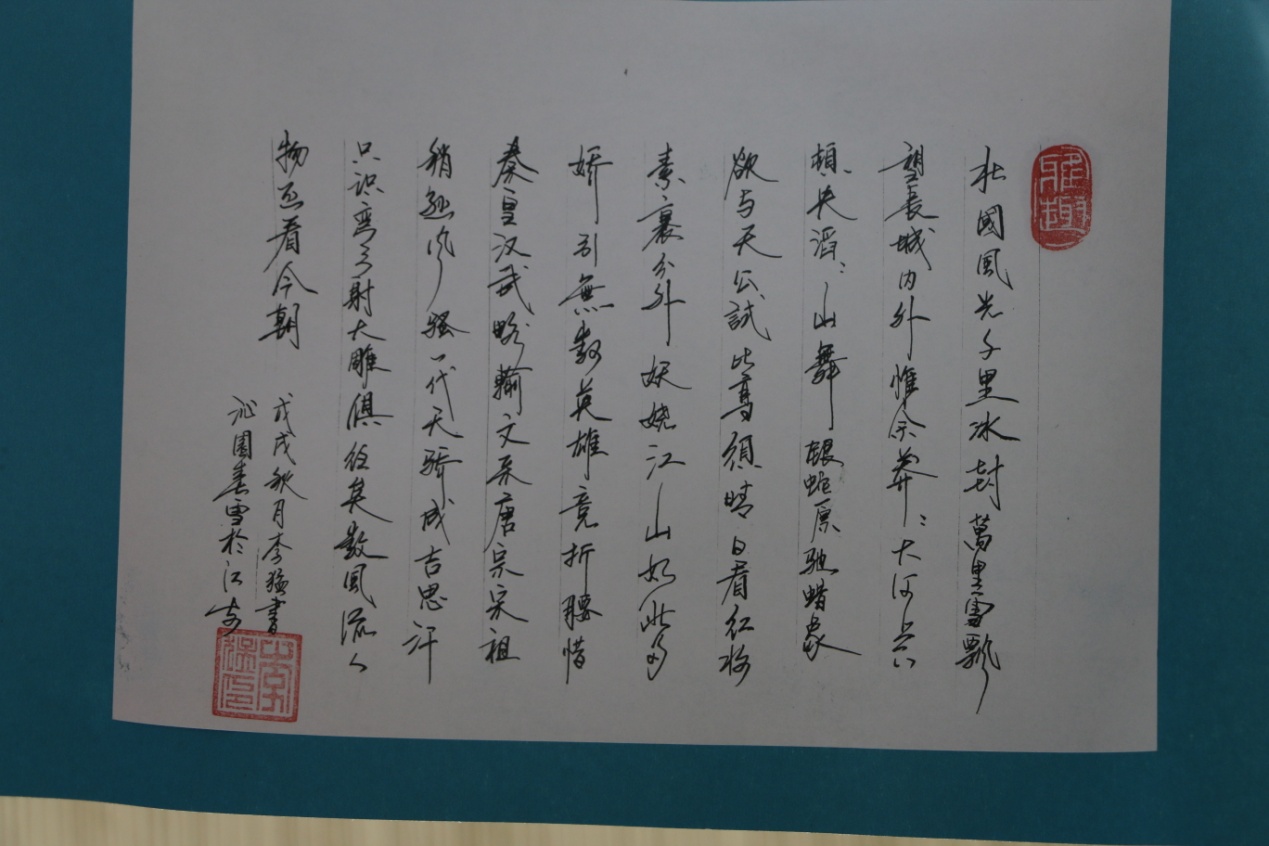 雅趣
北國風光千里冰封萬里雪飄
望長城内外惟余莽〻大河上下
頓失滔〻山舞銀蛇原馳蜡象
欲与天公試比高須晴日看红妆
素裹分外妖娆江山如此多
娇引無数英雄竞折腰惜
秦皇汉武略輸文采唐宗宋祖
稍逊风騷一代天骄成吉思汗
只识弯弓射大雕俱往矣数風流人
物还看今朝
戊戌秋月李猛書
沁園春雪於江安